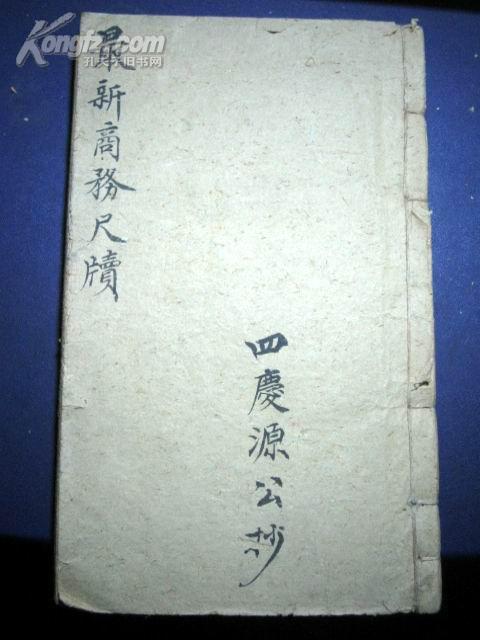 Kongfz.com
孔夫子旧书网
最新商務尺牘
四慶源公抄